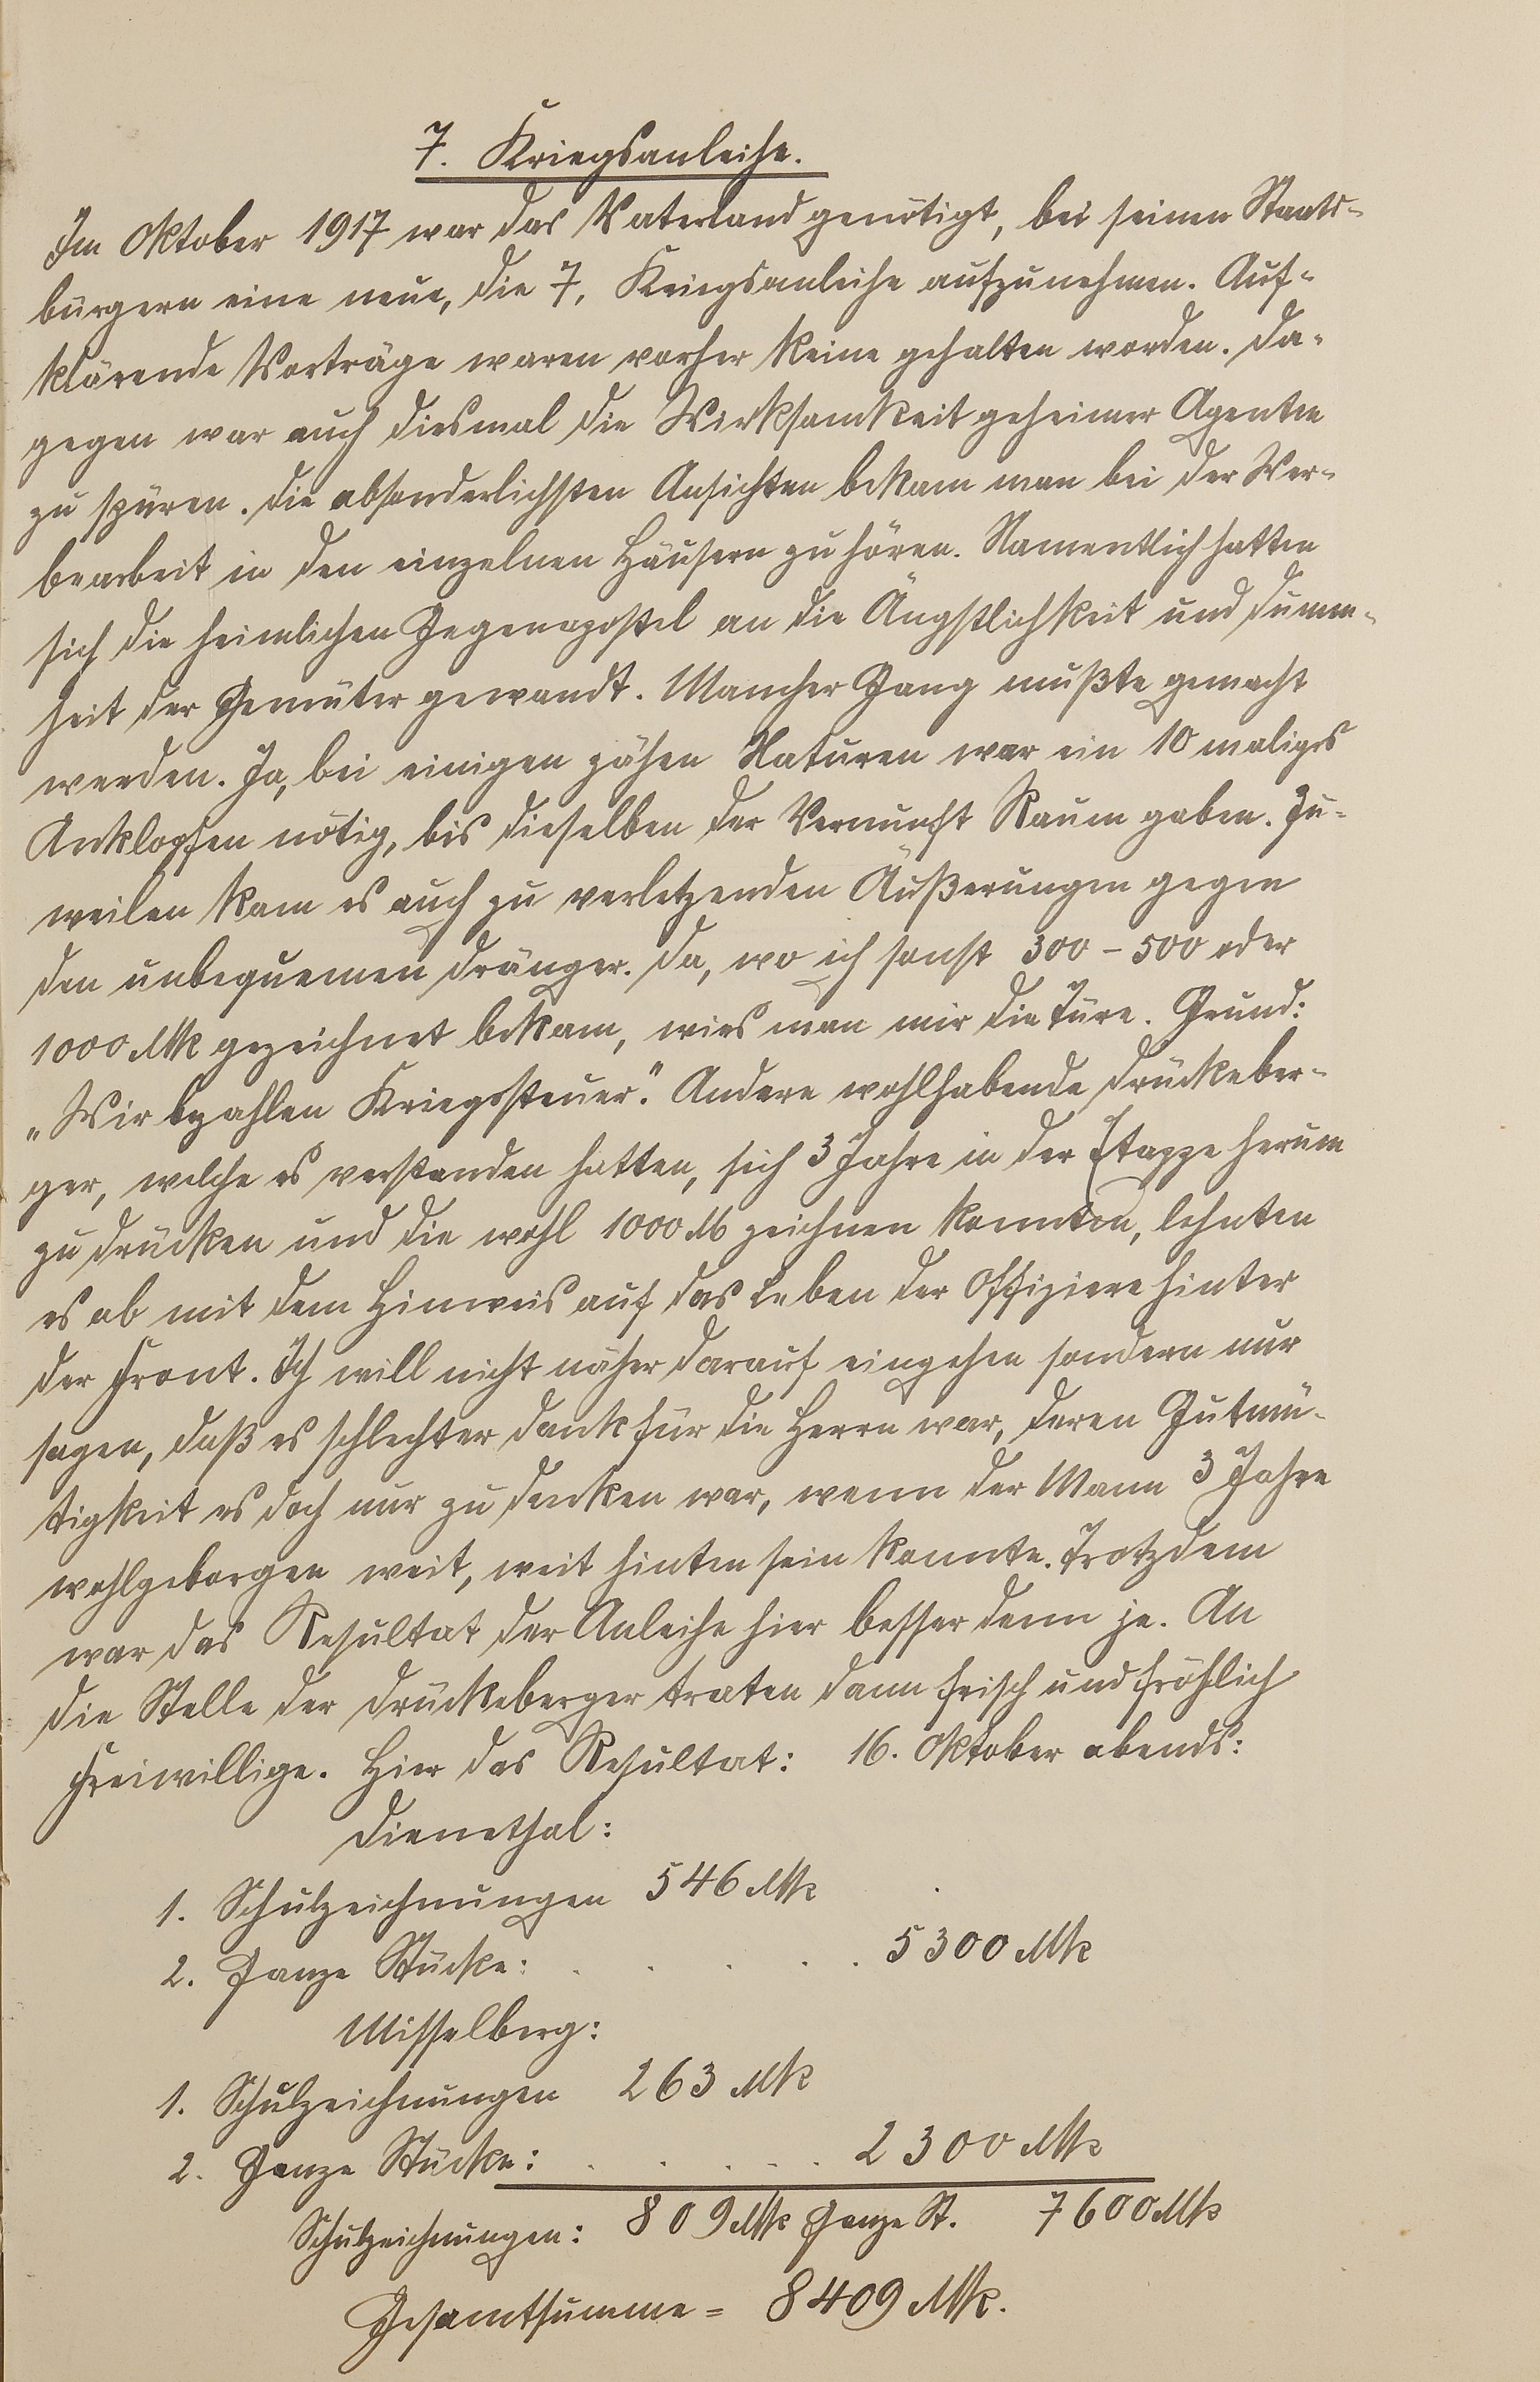 7. Kriegsanleihe.
Im Oktober 1917 war das Vaterland genötigt, bei seinen Staats-
bürgern eine neue, die 7. Kriegsanleihe aufzunehmen. Auf-
klärende Vorträge waren vorher keine gehalten worden. Da-
gegen war auch diesmal die Wirksamkeit geheimer Agenten
zu spüren. Die absonderlichsten Ansichten bekam man bei der Wer-
bearbeit in den einzelnen Häusern zu hören. Namentlich hatten
sich die heimlichen Gegenapostel an die Ängstlichkeit und Dumm-
heit der Gemüter gewandt. Mancher Gang mußte gemacht
werden. Ja, bei einigen zähen Naturen war ein 10 maliges
Anklopfen nötig, bis dieselben der Vernunft Raum gaben. Zu-
weilen kam es auch zu verletzenden Äußerungen gegen
den unbequemen Dränger. Da, wo ich sonst 300 - 500 oder
1000 Mk gezeichnet bekam, wies man mir die Türe. Grund:
„Wir bezahlen Kriegssteuer". Andere wohlhabende Drückeber-
ger, welche es verstanden hatten, sich 3 Jahre in der Etappe herum
zu drücken und die wohl 1000 M zeichnen konnten, lehnten
es ab mit dem Hinweis auf das Leben der Offiziere hinter
der Front. Ich will nicht näher darauf eingehen sondern nur
sagen, daß es schlechter Dank für die Herrn war, deren Gutmü-
tigkeit es doch nur zu denken war, wenn der Mann 3 Jahre
wohlgeborgen weit, weit hinten sein konnte. Trotzdem
war das Resultat der Anleihe hier besser denn je. An
die Stelle der Drückeberger traten dann frisch und fröhlich
Freiwillige. Hier das Resultat: 16. Oktober abends:
Dienethal:
1. Schulzeichnungen 546 Mk
2. Ganze Stücke: . . . . . 5300 Mk
Misselberg:
1. Schulzeichnungen 263 Mk
2. Ganze Stücke: . . . . . 2300 Mk
Schulzeichnungen: 809 Mk Ganze St. 7600 Mk
Gesamtsumme = 8409 Mk.